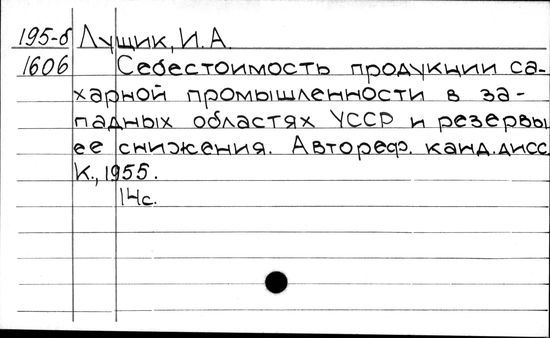 195-б Лущик, И.А.
1606 Себестоимость продукции са-
харной промышленности в за-
падных областях УССР и резервы
ее снижения. Автореф. канд.дисс.
К., 1955.
14с.